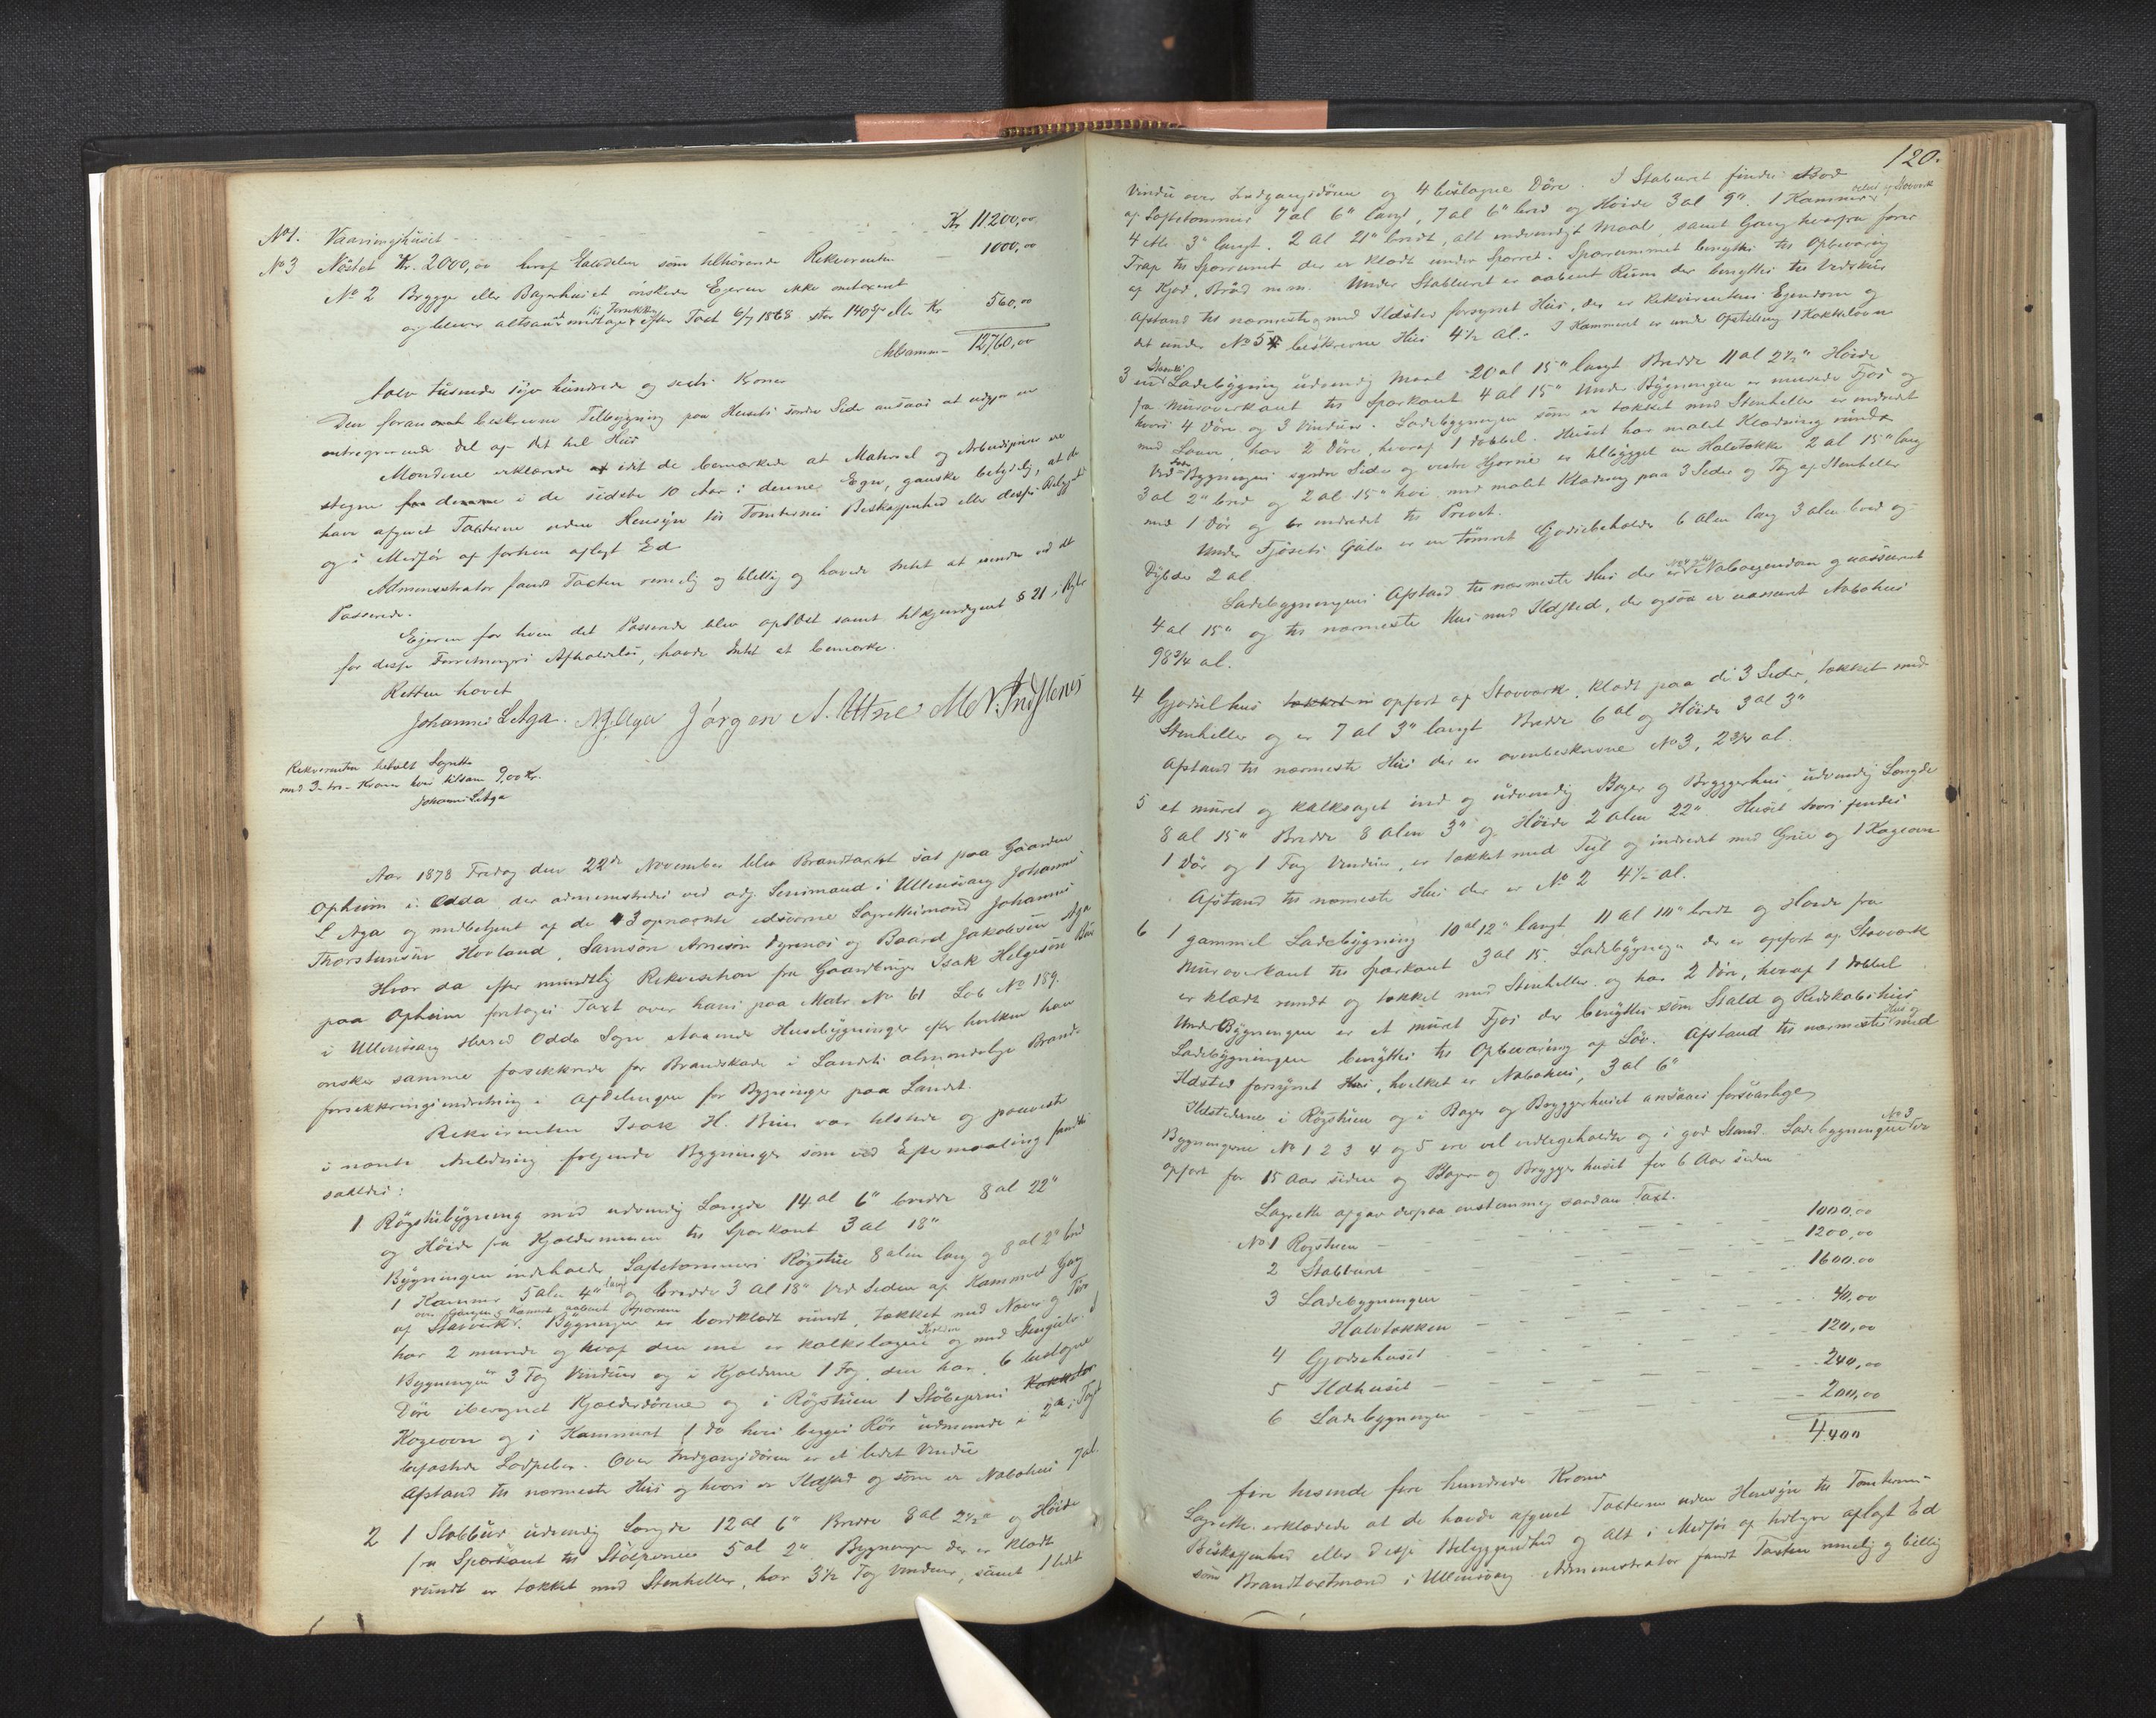 No 1. Vaaningshuset Kr. 11200,00
No 3 Nöstet Kr. 2000,00 heraf Halvdelen som tilhörende Rekvirenten 1000,00
No 2 Brygge eller Bagerhuset önskede Ejeren ikke omtaxeret
og bliver altsaa medtaget til Forsikkring efter Taxt 6/7 1868 stor 140 Spd eller Kr 560,00
Tilsammen 12760,00
tolv tusende syv hundrede og seti Kroner
Den foran beskrevne Tilbygning paa Husets söndre Side ansaaes at udgjøre en
integrerende Del af det hele Hus
Mændene erklærede idet de bemærkede at Materiel og Arbeidspriser ere
stegne i de sidste 10 Aar i denne Egn, ganske betydelig, at de
have afgivet Taxterne uden Hensyn til Tomternes Beskaffenhed eller disses Beliggenhed
og i Medför af forhen aflagt Ed
Administrator fandt Taxten rimelig og billig og havde Intet at erindre ved det
Passerede.
Ejeren for hvem det Passerede blev oplæst samt tilkjendegivet § 21 i
for disse Forretningers Afholdelse, havde Intet at bemærke.
Retten hævet
Johannes L Aga. Jörgen N.
Rekvirenten betalt Lagrette
med 3 - tre - Kroner hver tilsam 9,00 Kr.
Johannes L Aga
Aar 1878 Fredag den 22de November blev Brandtaxtret sat paa Gaarden
Opheim i Odda der administreres ved adj. Lensmand i Ullensvang Johannes
L Aga og medbetjent af de 3 opnævnte edsvorne Lagrettesmænd Johannes
Thorsteinsen Hovland, Samson Arnesön og Baard Jakobsen Aga
Hvor da efter mundtlig Rekvisition fra Gaardbruger Isak Helgesön
paa Opheim foretages Taxt over hans paa Matr. No 61 Löb No 189.
i Ullensvang Herred Odda Sogn staaende Husebygninger efter hvilken han
ønsker samme forsikkrede for Brandskade i Landets almindelige Brand-
forsikkringsindretning i Afdelingen for Bygninger paa Landet.
Rekvirenten Isak H. var tilstede og paaviste
i nævnte Anledning følgende Bygninger som ved Eftermaaling fandtes
saaledes:
1. Røgstubygning med udvendig Længde 14 al 6" bredde 8 al 22"
og Höide fra Kjældermuren til Sparkant 3 al 18"
Bygningen indeholder Laftetømmers Rögstue 8 alen lang og 8 al 2" bred
1 Kammer 5 alen 4" lang og bredde 3 al 18" Ved Siden af Kammeret Gang
over Gangen og Kammert aabent Sparrum
af Stavverk. Bygningen er bordklædt rundt, tækket med Næver og Törv
har 2 murede og hvoraf den ene er kalkslagen Kjeldere og med Stengulv. I
Bygningen er 3 Fag Vinduer og i Kjælderne 1 Fag, den har 6 beslagne
Döre iberegnet Kjælderdörene og i Rögstuen 1 Stöbejerns
Kogeovn og i Kammeret 1 do hvis begges Rör udmunde i 2de i Taget
befæstede Lodpiber. Over Indgangsdören er et lidet Vindue
Afstand til nærmeste Hus og hvori er Ildsted og som er Nabohus 7 al.
2 1 Stabbur udvendig Længde 12 al 6" Bredde 8 al 2½" og Höide
fra Sparkant til Stolperne 5 al 2" Bygningen der er klædt
rundt er tækket med Stenheller, har 3½ Fag Vinduer, samt 1 lidet
120.
Vindu over Indgangsdören og 4 beslagne Döre. I Staburet findes Bod
af Laftetømmer 7 al 6" langt, 7 al 6" bred og Höide 3 al 9". 1 Kammer
4 al 3" langt. 2 al 21" bredt, alt indvendigt Maal, samt Gang hvorfra förer
Trap til Sparrumet der er klædt under Sparret. Sparrummet benyttes til Opbevaring
af Kjöd, Bröd m.m. Under Stabburet er aabent Rum der benyttes til Vedskur
Afstand til nærmeste med Ildsted forsynet Hus, der er Rekvirentens Ejendom og
det under No 5 beskrevne Hus 4½ Al. I Kammeret er under Opstilling 1 Kakkelovn
3 en Ladebygning udvendig Maal 20 al 15" langt Bredde 11 al 2½" Höide
fra Muroverkant til Sparkant 4 al 15" Under Bygningen er murede Fjös og
hvori 4 Döre og 3 Vinduer. Ladebygningen som er tækket med Stenheller er indredet
med Löver, har 2 Döre, hvoraf 1 dobbel. Huset har malet Klædning rundt
Ved Bygningens Side og vestre Hjørne er tilbygget en Halvtække 2 al 15" lang
3 al 2" bred og 2 al 15" höi med malet Klædning paa 3 Sider og Tag af Stenheller
med 1 Dör og er indredet til Privet.
Under Fjösets Gulv er en tömret Gjødsebeholder 6 alen lang 3 alen bred og
Dybde 2 al
Ladebygningens Afstand til nærmeste Hus der er Naboejendom og uassureret
4 al 15" og til nærmeste Hus med Ildsted, der ogsaa er uassureret Nabohus
98¾ al.
4 Gjødselhus opført af Stavværk, klædt paa de 3 Sider, tækket med
Stenheller og er 7 al 3" langt Bredde 6 al og Höide 3 al 3"
Afstand til nærmeste Hus der er ovenbeskrevne No 3, 2¾ al.
5 et muret og kalkslaget ind og udvendig Bager og Bryggerhus, udvendig Længde
8 al 15" Bredde 8 alen 3" og Höide 2 alen 22" Huset hvori findes
1 Dör og 1 Fag Vinduer, er tækket med Tegl og indredet med Grue og 1 Bageovn
Afstand til nærmeste Hus der er No 2 4½ al.
6 1 gammel Ladebygning 10 al 12" langt 11 al 14" bredt og Höide fra
Muroverkant til Sparkant 3 al 15. Ladebygningen der er opført af Stavværk
er klædt rundt og tækket med Stenheller og har 2 Döre, hvoraf 1 dobbel
Under Bygningen er et muret Fjös der benyttes som Stald og Redskabshus
Ladebygningen benyttes til Opbevaring af Löv. Afstand til nærmeste Hus og med
Ildsted forsynet, hvilket er Nabohus, 3 al 6"
Ildstederne i Rögstuen og i Bager og Bryggerhuset ansaaes forsvarlige
Bygningerne No 1 2 3 4 og 5 ere vel vedligeholdte og i god Stand. Ladebygningen No 3 er
opført for 15 Aar siden og Bager og Bryggerhuset for 6 Aar siden
Lagrette afgav derpaa enstemmig saadan Taxt.
No 1 Rögstuen 1000,00
2 Stabburet 1200,00
3 Ladebygningen 1600.00
Halvtækken 40,00
4 Gjødsehuset 120,00
5 Ildhuset 240,00
6 Ladebygningen 200,00
4400
fire tusende fire hundrede Kroner
Lagrette erklærede at de havde afgivet Taxterne uden Hensyn til Tomternes
Beskaffenhed eller disses Beliggenhed og Alt i Medför af tidligere aflagt Ed
som Brandtaxtmænd i Ullensvang Administrator fandt Taxten rimelig og billig